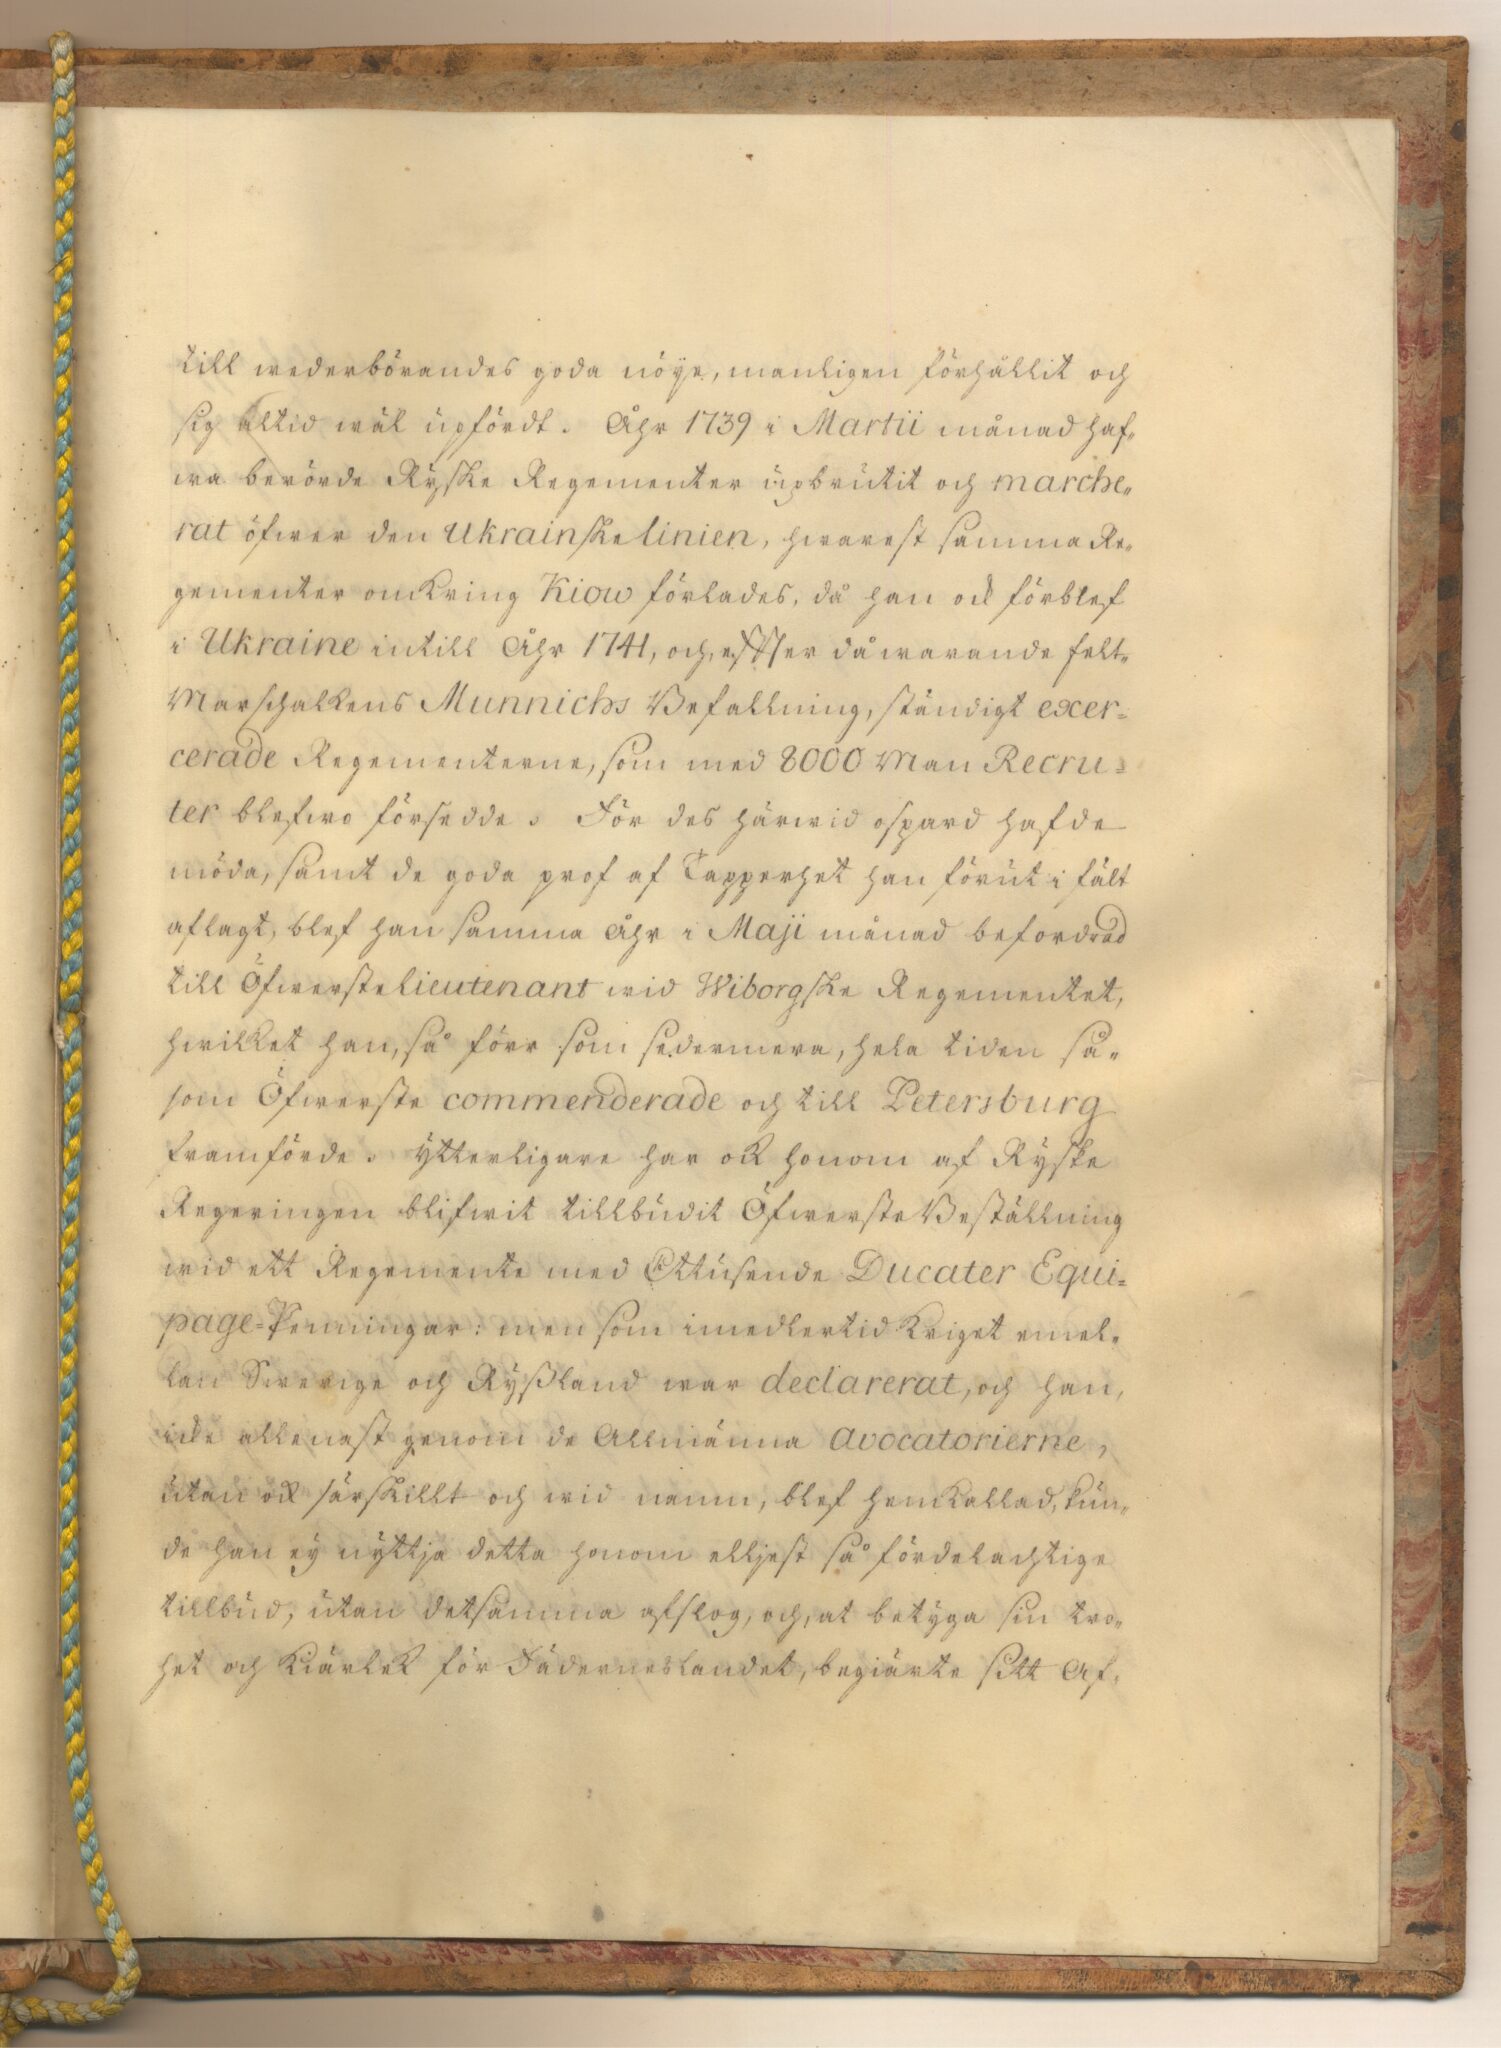 till wederbörandes goda nöye, manligen förhållit och
sig altid wäl upfördt. Åhr 1739 i Martii månad haf-
wa berörde Ryske Regementer upbrutit och marche-
rat öfwer den Ukrainske linien, hwarest samma Re-
gementer omkring Kiow förlades, då han ock förblef
i Ukraine intill Åhr 1741, och, effter då warande felt-
Marschalkens Munnichs Befallning, ständigt exer-
cerade Regementerne, som med 8000 Man Recru-
ter blefwo försedde. För des härwid ospard hafde
möda, samt de goda prof af Tapperhet han förut i fält
aflagt, blef han samma Åhr i Maji månad befordrad
till Öfwerstelieutenant wid Wiborgske Regementet,
hwilket han, så förr som sedermera, hela tiden så-
som Öfwerste commenderade och till Petersburg
framförde. Ytterligare har ock honom af Ryske
Regeringen blifwit tillbudit Öfwerste Beställning
wid ett Regemente med Ettusende Ducater Equi-
page-Penningar: men som imedlertid Kriget emel-
lan Swerige och Ryßland war declarerat, och han,
icke allenast genom de Allmänna Avocatorierne,
utan ock särskillt och wid namn, blef hemkallad, kun-
de han ey nyttja detta honom elljest så fördelachtige
tillbud, utan detsamma afslog, och, at betyga sin tro-
het och Kiärlek för Fäderneslandet, begiärte sitt Af-